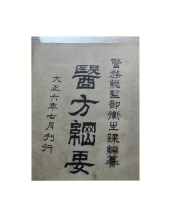 警務總監部衛生課編纂
醫方綱要
大正六年七月刊行